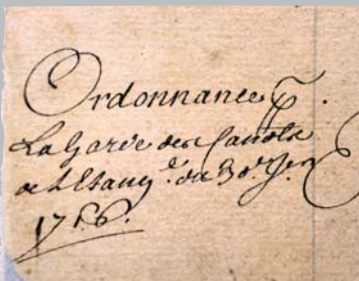 Ordonnance
La Garde des Canots
de L'Etang du 30 Jer
1756.